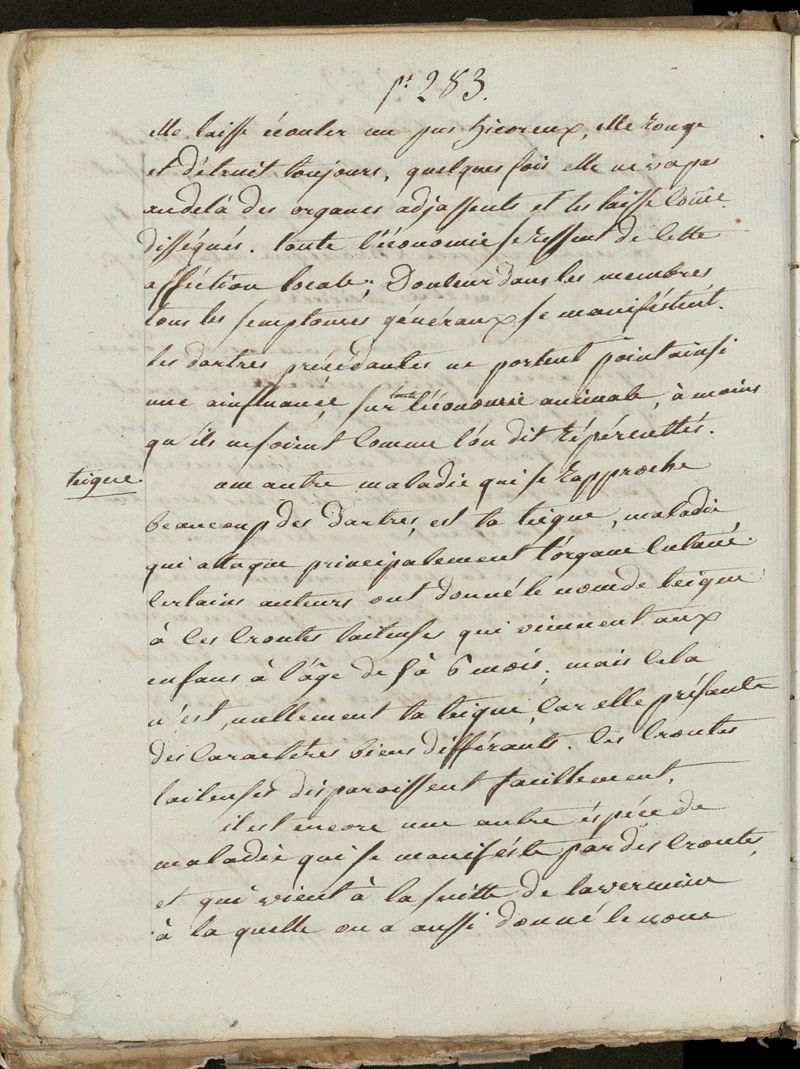 pe 283.
elle laisse écouler un pus hicoreux, elle ronge
et détruit toujours, quelques fois elle ne va pas
audelà des organes adjassents et les laisse com̃e
disséqués. toute l'économie se ressent de cette
afféction locale; Douleur dans les membres
tous les semptomes généraux se maniféstent.
les dartres précédantes ne portent point ainsi
une ainfluance, sur toute l'économie animale, à moins
qu'ils ne soient comme l'on dit répércuttés.
teigne
une autre maladie qui se rapproche
beaucoup des dartres, est la teigne, maladie
qui attaque principalement l'organe cutané.
certains auteurs ont donné le nom de teigne
à ces croutes laiteuses qui viennent aux
enfans à l'âge de 5 à 6 mois, mais cela
n'est, nullement la teigne, car elle présente
des caractères biens différants. ces croutes
laiteuses disparoissent facillement.
il est encore une autre éspéce de
maladie qui se maniféste par des croutes,
et qui vient à la suitte de la vermine
à la quelle on a aussi donné le nom